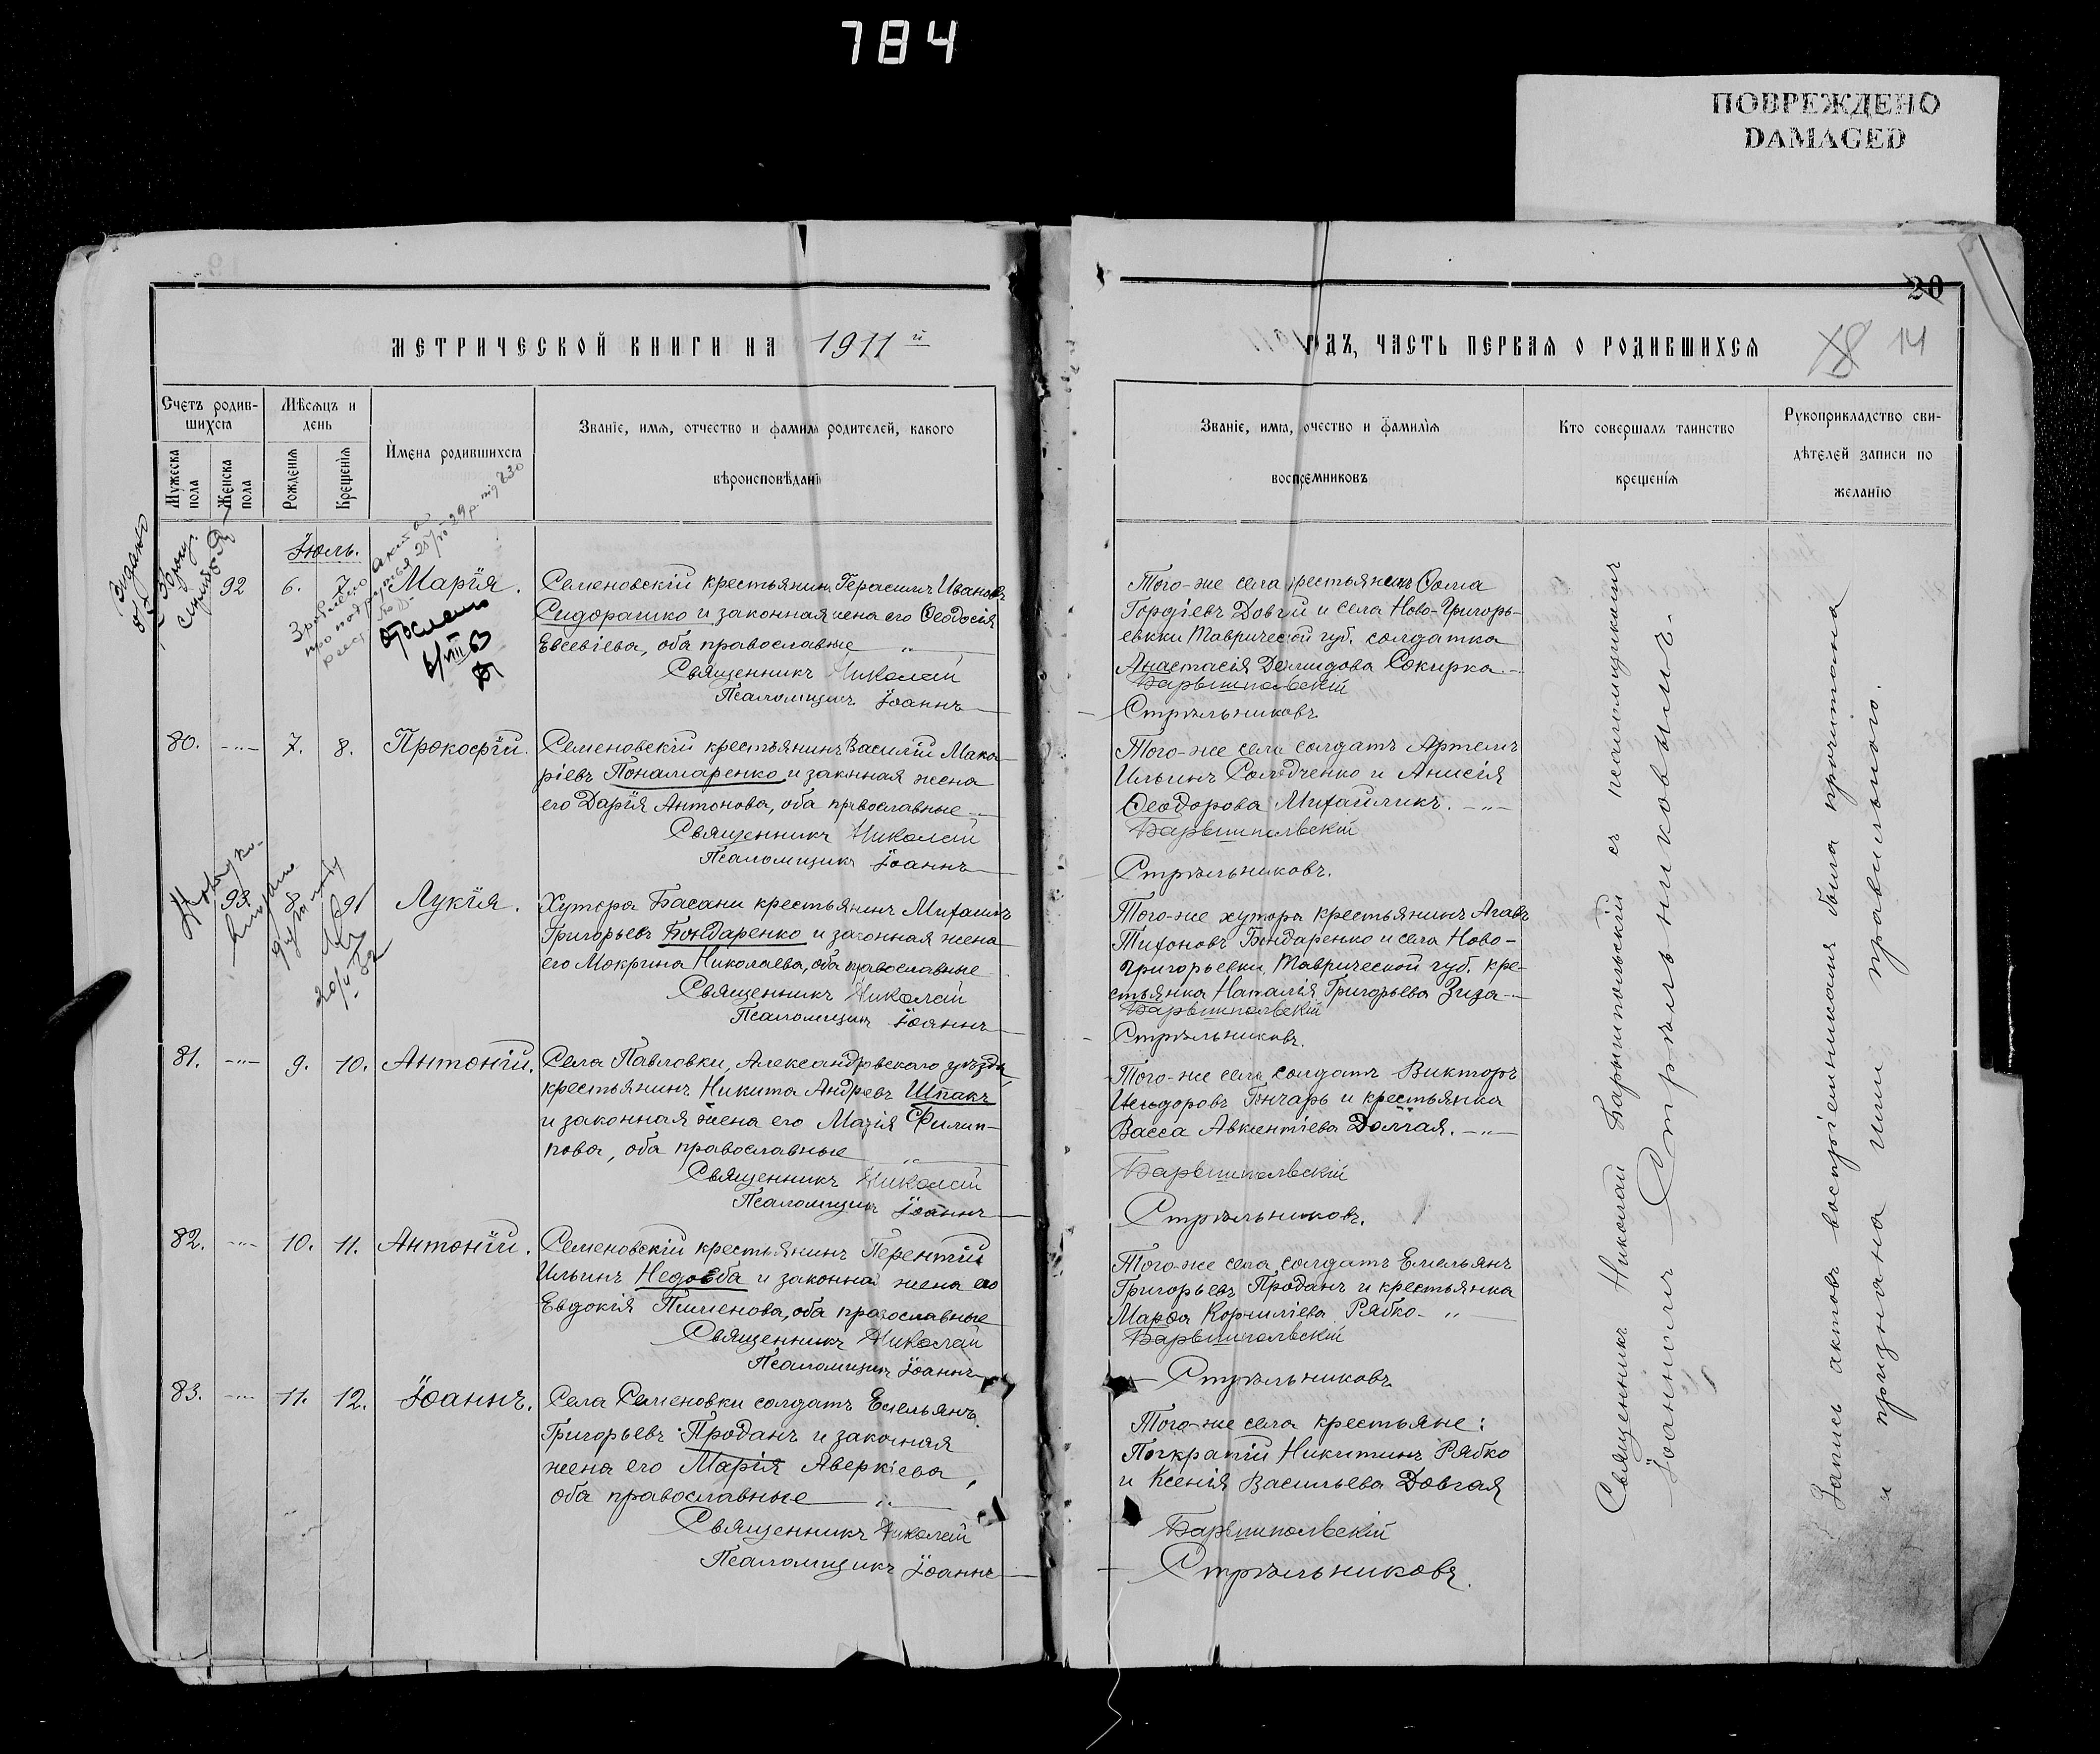 784
ПОВРЕЖДЕНО
DAMAGED
МЕТРИЧЕСКОЙ КНИГИ НА 1911й
Счетъ родив-
шихся
Мѣсяцъ и
день
Имена родившихся
Званіе, имя, отчество и фамилія родителей, какого
вѣроисповѣданія
Мужеска
пола
Женска
пола
Рожденія
Крещенія
Іюль.
92 6. 7. Марія. Семеновскій крестьянинъ Герасимъ Ивановъ
Сидорашко и законная жена его Ѳеодосія
Евсевіева, оба православные
Священникъ Николай
Псаломщикъ Іоаннъ
80. 7. 8. Прокофій. Семеновскій крестьянинъ Василій Мака-
ріевъ Пономаренко и законная жена
его Дарія Антонова, оба православные
Священникъ Николай
Псаломщикъ Іоаннъ
93. 8. 9 Лукія. Хутора Басани крестьянинъ Михаилъ
Григорьевъ Бондаренко и законная жена
его Мокрина Николаева, оба православные
Священникъ Николай
Псаломщикъ Іоаннъ
81. 9. 10. Антоній. Села Павловки, Александровскаго уѣзда,
крестьянинъ Никита Андреевъ Шпакъ
и законная жена его Марія Филип-
пова, оба православные
Священникъ Николай
Псаломщикъ Іоаннъ
82. 10. 11. Антоній. Семеновскій крестьянинъ Терентій
Ильинъ Недоѣба и законная жена его
Евдокія Пименова, оба православные
Священникъ Николай
Псаломщикъ Іоаннъ
83. 11. 12. Іоаннъ. Села Семеновки солдатъ Емельянъ
Григорьевъ Проданъ и законная
жена его Марія Аверкіева,
оба православные
Священникъ Николай
Псаломщикъ Іоаннъ
20
ГОДЪ, ЧАСТЬ ПЕРВАЯ О РОДИВШИХСЯ
18 14
Званіе, имя, очество и фамилія
воспремниковъ
Кто совершалъ таинство
крещенія
Рукоприкладство сви-
дѣтелей записи по
желанію
Того-же села крестьянинъ Ѳома
Гордіевъ Довгій и села Ново-Григорь-
евки Таврической губ. солдатка
Анастасія Демидова Сокирка
Барышпольскій
Стрѣльниковъ
Того-же села солдатъ Артемъ
Ильинъ Солодченко и Анисія
Ѳеодорова Михайликъ.
Барышпольскій
Стрѣльниковъ.
Того-же хутора крестьянинъ Агавъ
Тихоновъ Бондаренко и села Ново-
григорьевки, Таврической губ. кре-
стьянка Наталія Григорьева Зиза
Барышпольскій
Стрѣльниковъ.
Того-же села солдатъ Викторъ
Исидоровъ Гончаръ и крестьянка
Васса Авкентіева Долгая.
Барышпольскій
Стрѣльниковъ.
Того-же села солдатъ Емельянъ
Григорьевъ Проданъ и крестьянка
Марфа Корниліева Рябко
Барышпольскій
Стрѣльниковъ
Того-же села крестьяне:
Панкратій Никитинъ Рябко
и Ксенія Васильева Довгая
Барышпольскій
Стрѣльниковъ.
Священникъ Николай Барышпольскій съ псаломщикомъ
Іоанномъ Стрѣльниковымъ.
Запись актовъ воспріемниками была прочитана
и признана ими правильною.